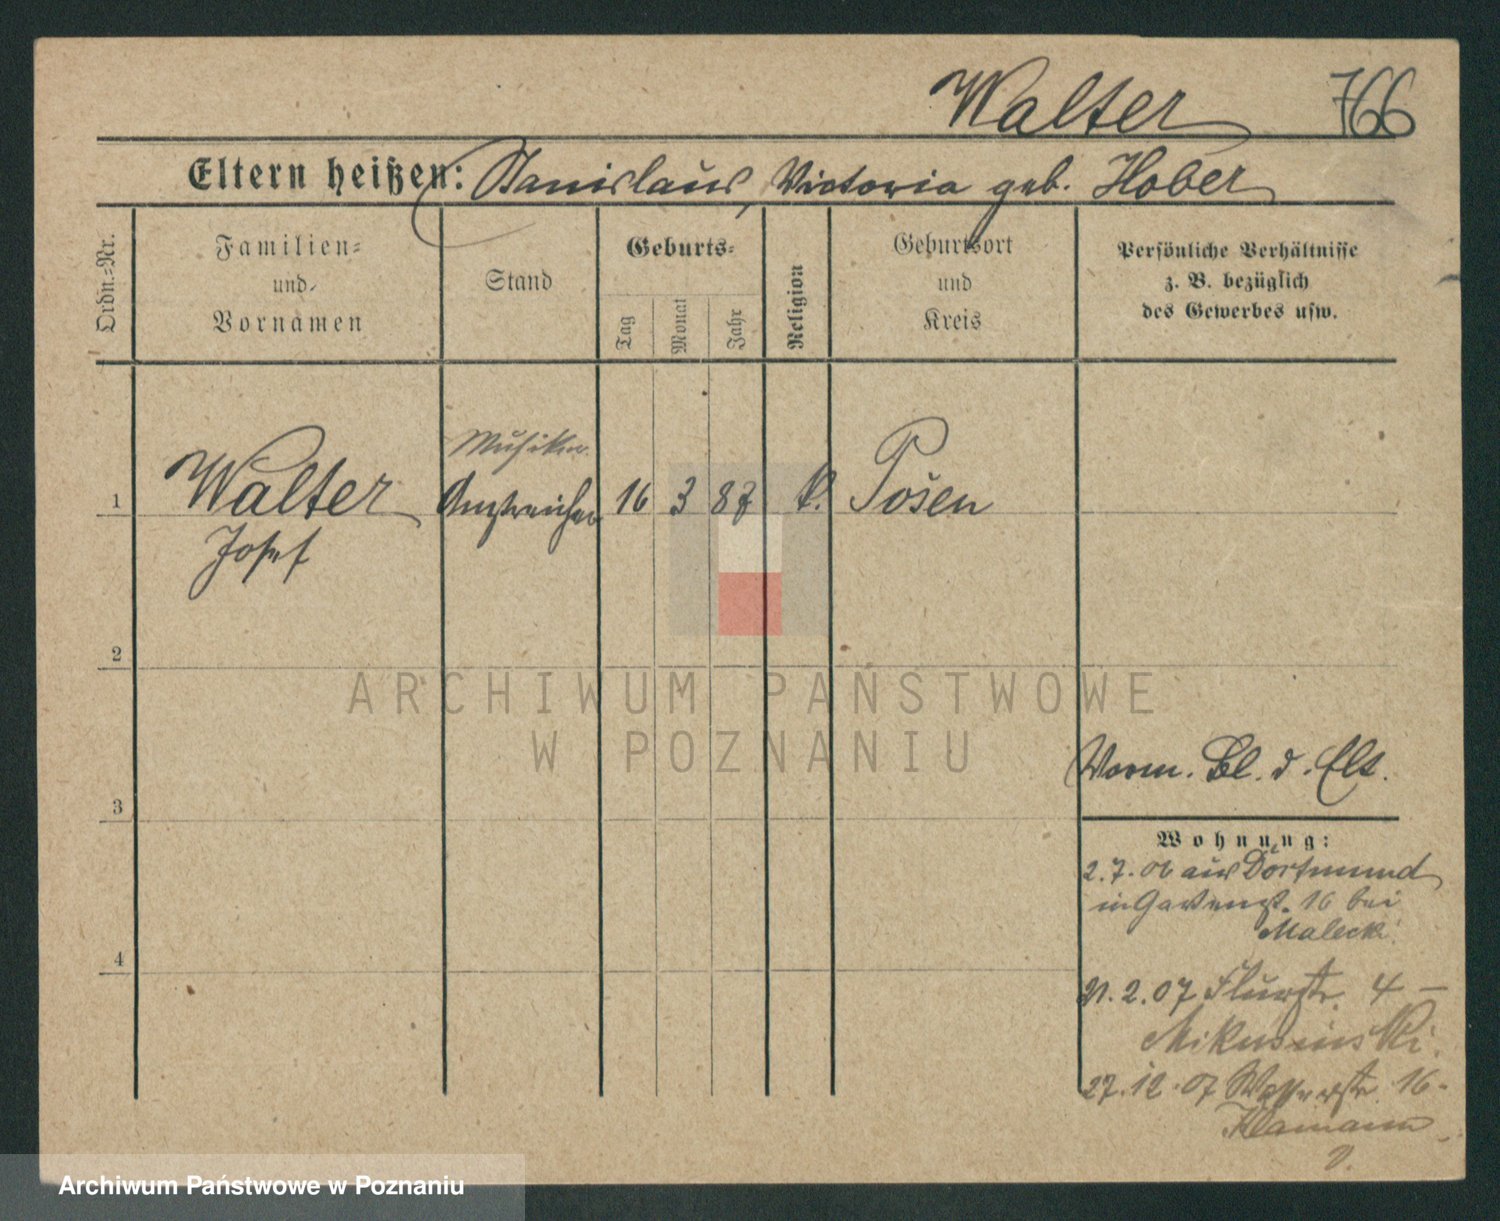 Walter 766
Eltern heißen: Stanislaus, Victoria geb. Hober
Ordn.-Nr.
Familien-
und
Vornamen
Stand
Geburts-
Tag
Monat
Jahr
Religion
Geburtsort
und
Kreis
Persönliche Verhältnisse
z. B. bezüglich
des Gewerbes usw.
Musiker
1 Walter Anstreicher 16 3 87 k. Posen
Josef
2
ARCHIWUM PAŃSTWOWE
W POZNANIU
Vorm. Bl. d. Elt.
3
Wohnung:
2.7.06 aus Dortmund
in Gartenst. 16 bei
Malecki
4
21.2.07 Flurstr. 4 –
Mikusinski.
27.12.07 Wasserstr. 16-
Klamann
Archiwum Państwowe w Poznaniu